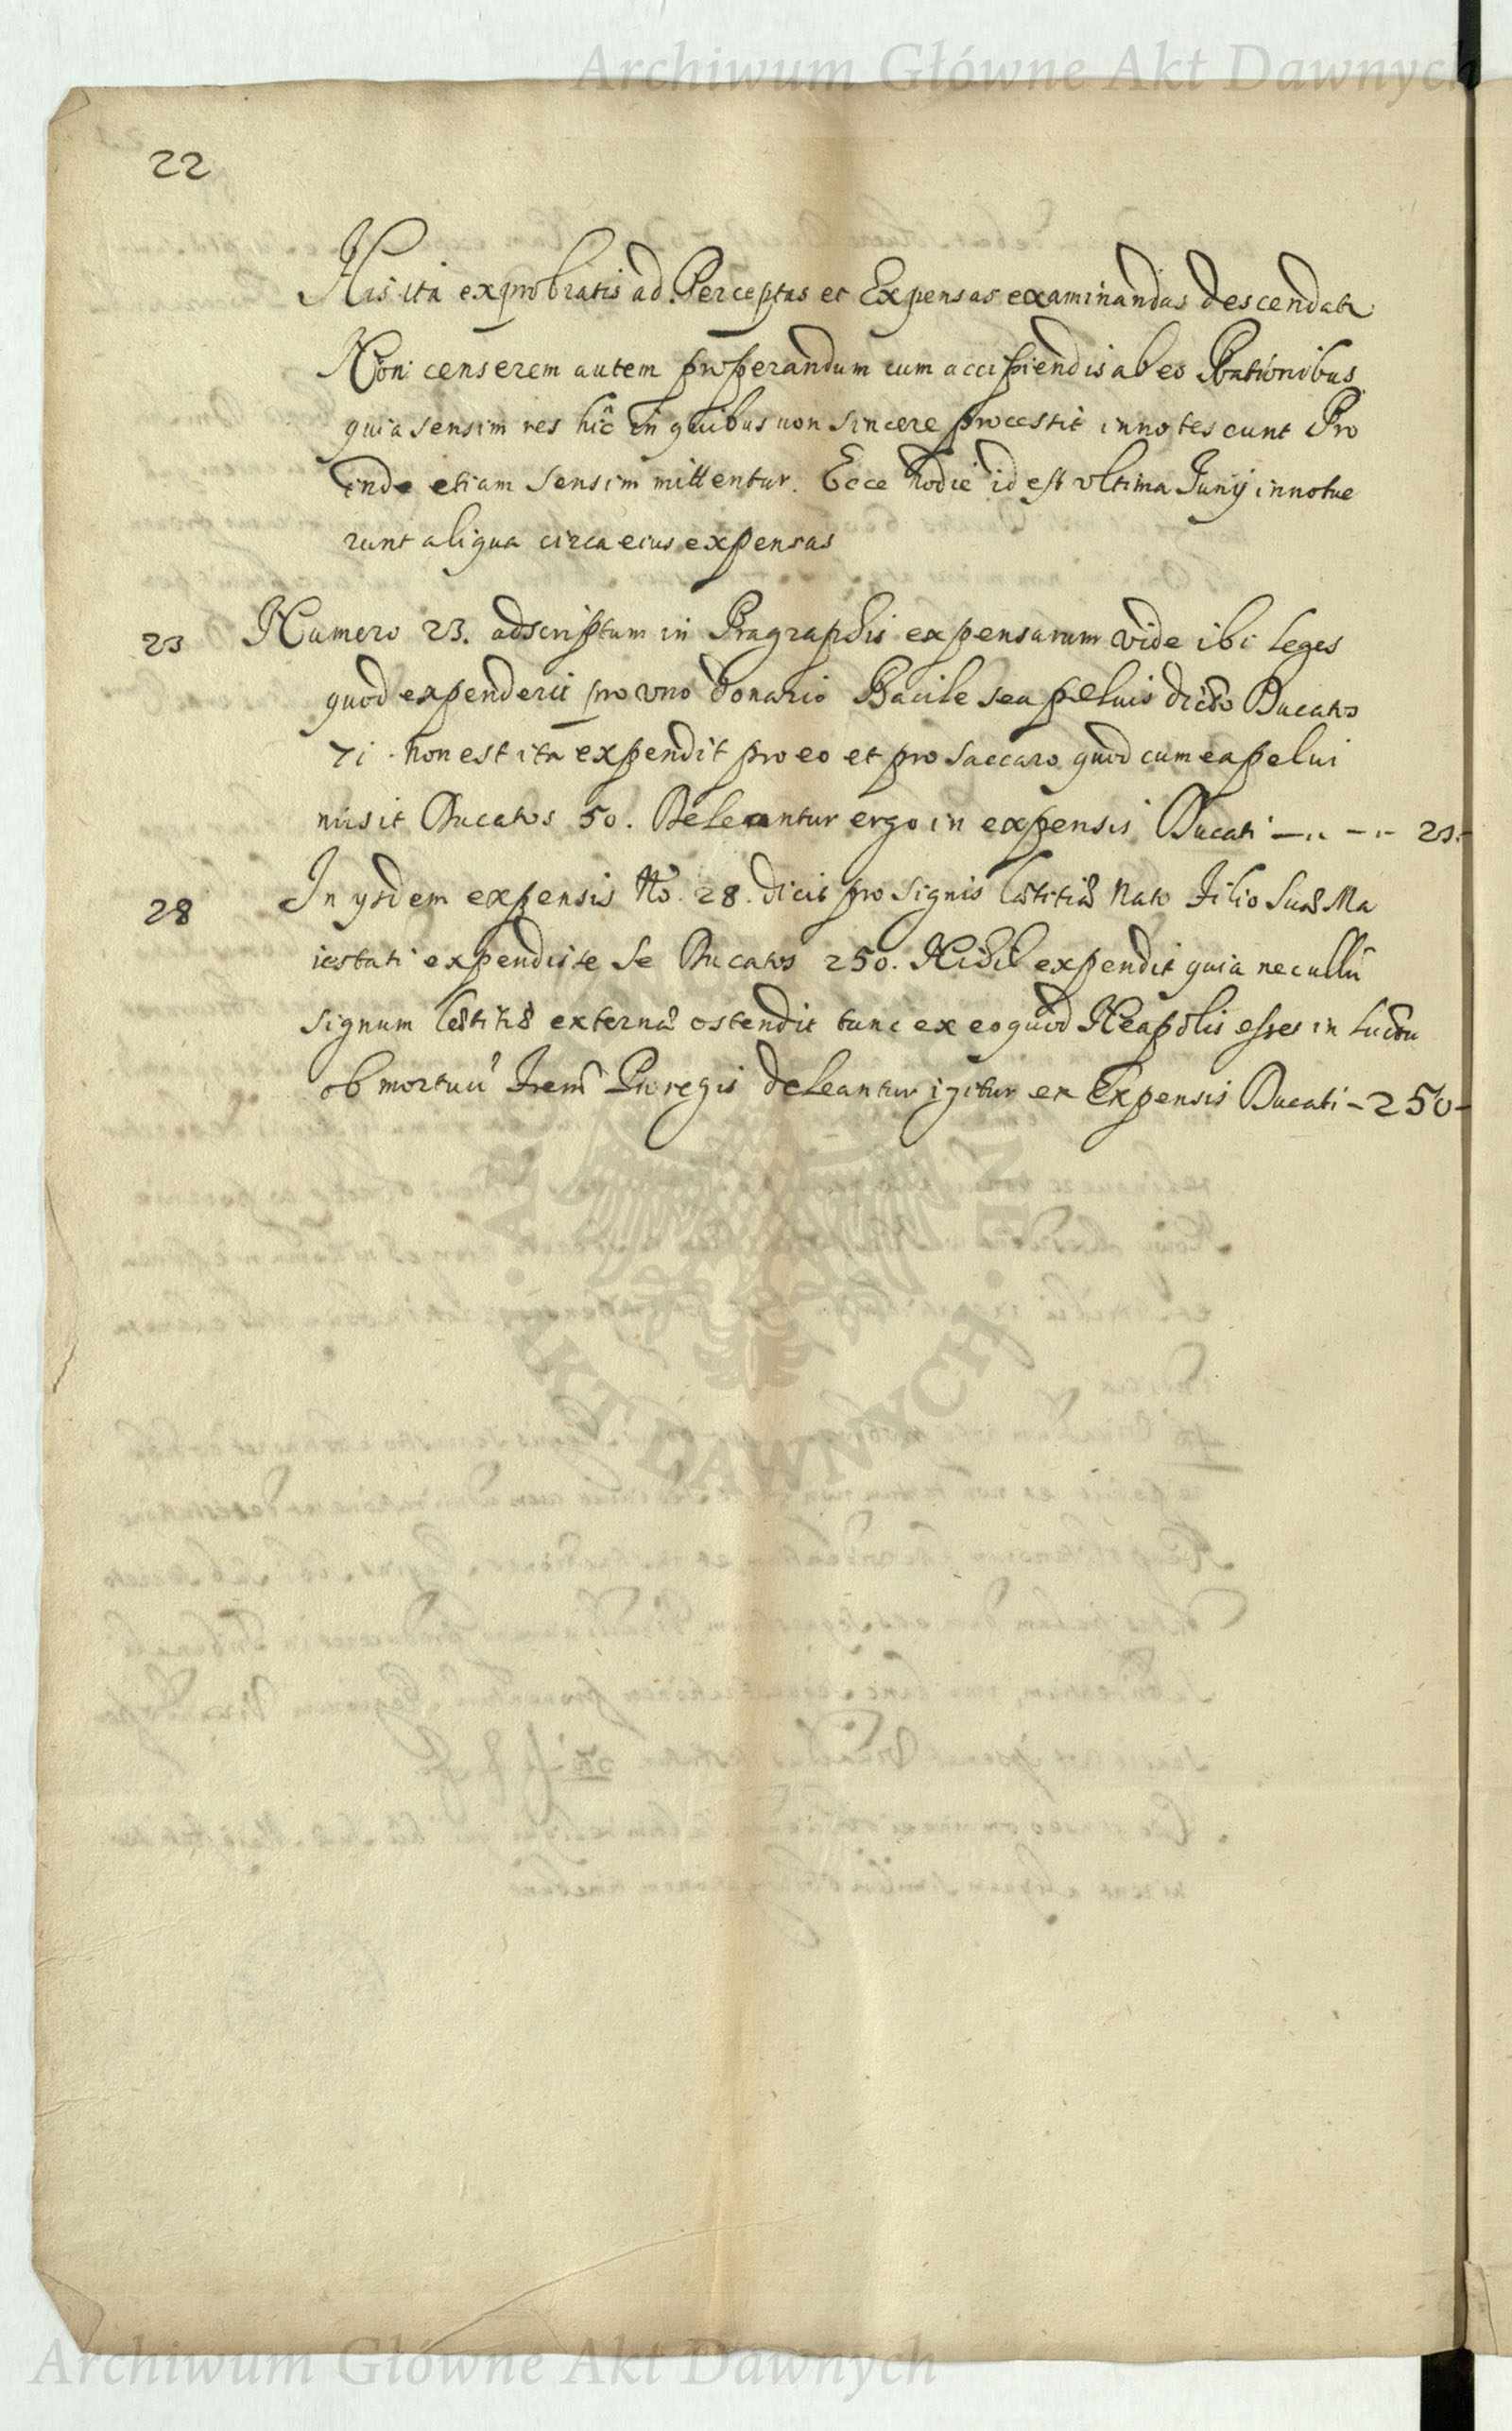 Archiwum Główne Akt Dawnych
22
His ita exprobratis ad Perceptas et Expensas examinandas descendatr
Non censerem autem properandum cum accipiendis ab eo Rationibus
quia sensim res hic in quibus non sincere processit innotescunt Pro
inde etiam sensim mittentur. Ecce hodie id est ultima Junij innotue
runt aliqua circa eius expensas
23 Numero 23. adscriptum in Pragraphis expensarum vide ibi leges
quod expenderit pro vno donario Bacile seu peluis dicto Ducatos
71. non est ita expendit pro eo et pro saccaro quod cum ea pelui
misit Ducatos 50. Deleantur ergo in expensis Ducati — .. - .- 21.-
28 In ysdem expensis No. 28. dicit pro signis lætitiæ Nato Filio Suæ Ma
iestati expendisse se Ducatos 250. Nihil expendit quia nec ullũ
signum lætitiæ externæ ostendit tunc ex eo quod Neapolis esset in luctu
ob mortuũ Frem̃ Proregis deleantur igitur ex Expensis Ducati - 250 -
ARCHIWUM GŁÓWNE · AKT DAWNYCH ·
Archiwum Główne Akt Dawnych